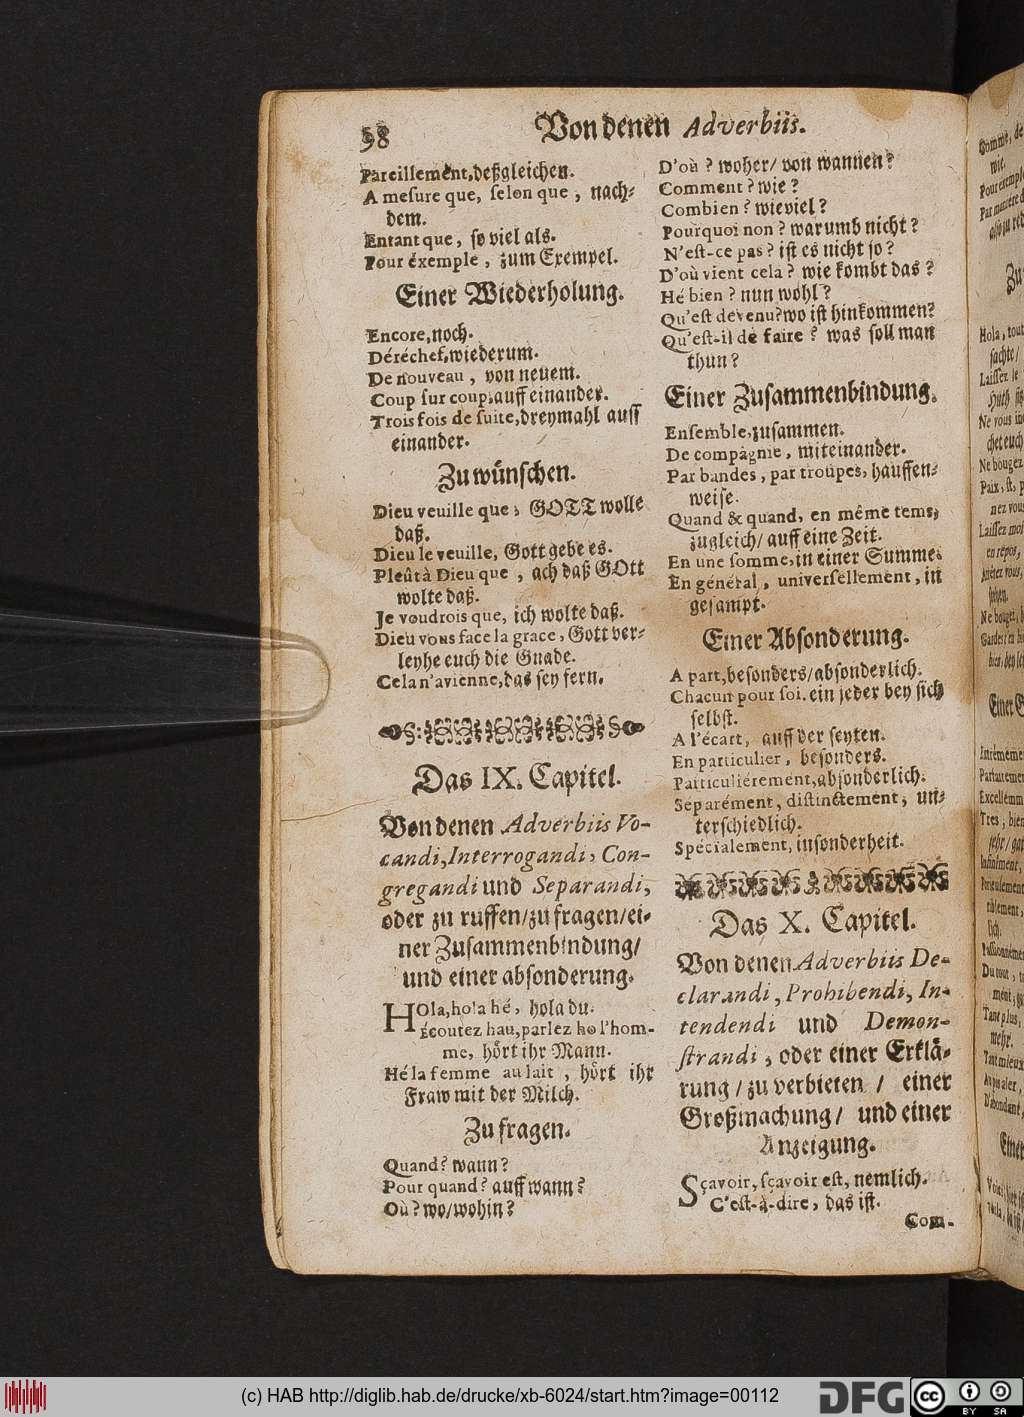 98 Von denen Adverbiis.
Pareillement, deßgleichen.
A mesure que, selon que, nach-
dem.
Entant que, so viel als.
Pour éxemple, zum Exempel.
Einer Wiederholung.
Encore, noch.
Déréchef, wiederum.
De nouveau, von neuem.
Coup sur coup, auff einander.
Trois fois de suite, dreymahl auff
einander.
Zu wünschen.
Dieu veuille que, GOTT wolle
daß.
Dieu le veuille, Gott gebe es.
Pleût à Dieu que, ach daß GOtt
wolte daß.
Je voudrois que, ich wolte daß.
Dieu vous face la grace, Gott ver-
leyhe euch die Gnade.
Cela n'avienne, das sey fern.
Das IX. Capitel.
Von denen Adverbiis Vo-
candi, Interrogandi, Con-
gregandi und Separandi,
oder zu ruffen/ zu fragen/ ei-
ner Zusammenbindung/
und einer absonderung.
HOla, hola hé, hola du.
Écoutez hau, parlez ho l'hom-
me, hört ihr Mann.
Hé la femme au lait, hört ihr
Fraw mit der Milch.
Zu fragen.
Quand? wann?
Pour quand? auff wann?
Où? wo/ wohin?
D'où? woher/ von wannen?
Comment? wie?
Combien? wieviel?
Pourquoi non? warumb nicht?
N'est-ce pas? ist es nicht jo?
D'où vient cela? wie kombt das?
Hé bien? nun wohl?
Qu'est devenu? wo ist hinkommen?
Qu'est-il de faire? was soll man
thun?
Einer Zusammenbindung.
Ensemble, zusammen.
De compagnie, miteinander.
Par bandes, par troupes, hauffen-
weise.
Quand & quand, en même tems,
zugleich/ auff eine Zeit.
En une somme, in einer Summe.
En général, universellement, in
gesampt.
Einer Absonderung.
A part, besonders/ absonderlich.
Chacun pour soi. ein jeder bey sich
selbst.
A l'écart, auff der seyten.
En particulier, besonders.
Particuliérement, absonderlich.
Separément, distinctement, un-
terschiedlich.
Spécialement, insonderheit.
Das X. Capitel.
Von denen Adverbiis De-
clarandi, Prohibendi, In-
tendendi und Demon-
strandi, oder einer Erklä-
rung/ zu verbieten/ einer
Großmachung/ und einer
Anzeigung.
Sçavoir, sçavoir est, nemlich.
C'est-à-dire, das ist.
Com-
Hola, tout
sachte/
Laissez le
Ne bougez
Paix, st, p
nez vous
Laissez moi
en repos,
Excellemm
Tres, bien
sehr/
lich.
Du tout,
mehr.
(c) HAB http://diglib.hab.de/drucke/xb-6024/start.htm?image=00112
DFG
cc BY SA